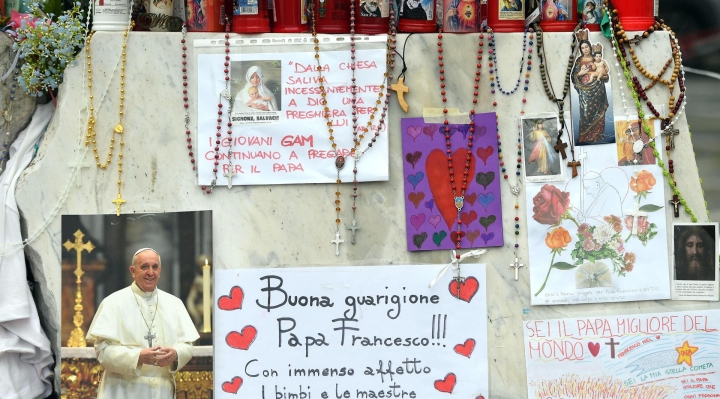 "DALLA CHIESA
SALIVA
INCESSANTEMENTE
A DIO UNA
PREGHIERA PER
LUI"
SIGNORE, SALVACI!
I GIOVANI GAM
CONTINUANO A PREGARE
PER IL PAPA
Buona guarigione
Papa Francesco!!!
Con immenso affetto
I bimbi e le maestre
SEI IL PAPA MIGLIORE DEL
MONDO
SEI LA MIA STELLA COMETA